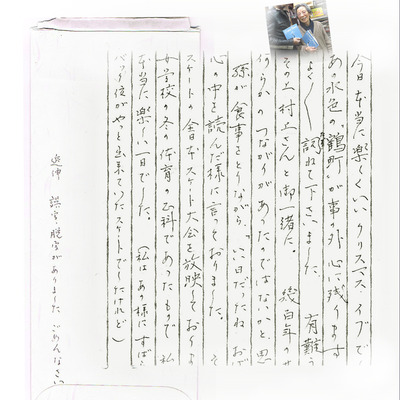 今日本当に楽しくいいクリスマスイブで
あの水色の「鶴町」が事の外心に残ります
訪れて下さいました。 有難う
その上村上さんと御一緒に。 幾百年の
何らかのつながりがあったのではないかと、思
孫が食事をとりながら、「いい日だったね お
心の中を読んだ様に言っておりました。 そ
スケートの全日本スケート大会を放映しており
女学校の冬の体育の正科であったもので 私
本当に楽しい一日でした。 (私はあの様にすば
バック位がやっと出来ていたスケートでしたけれど)
追伸 誤字脱字がありました ごめんなさい